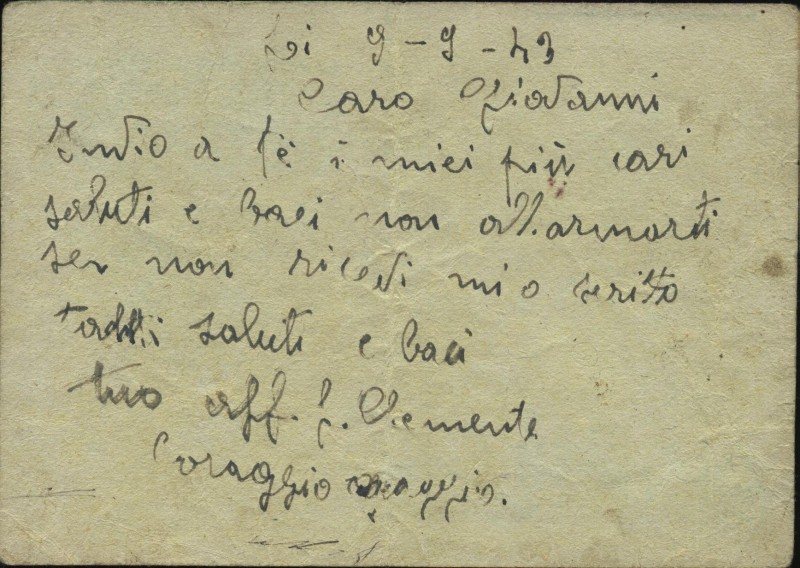 Li 9-9-43
Caro Giovanni
Invio a tè i miei più cari
saluti e baci non allarmarti
se non ricevi mio scritto
saluti e baci
tuo aff. f. Clemente
Coraggio